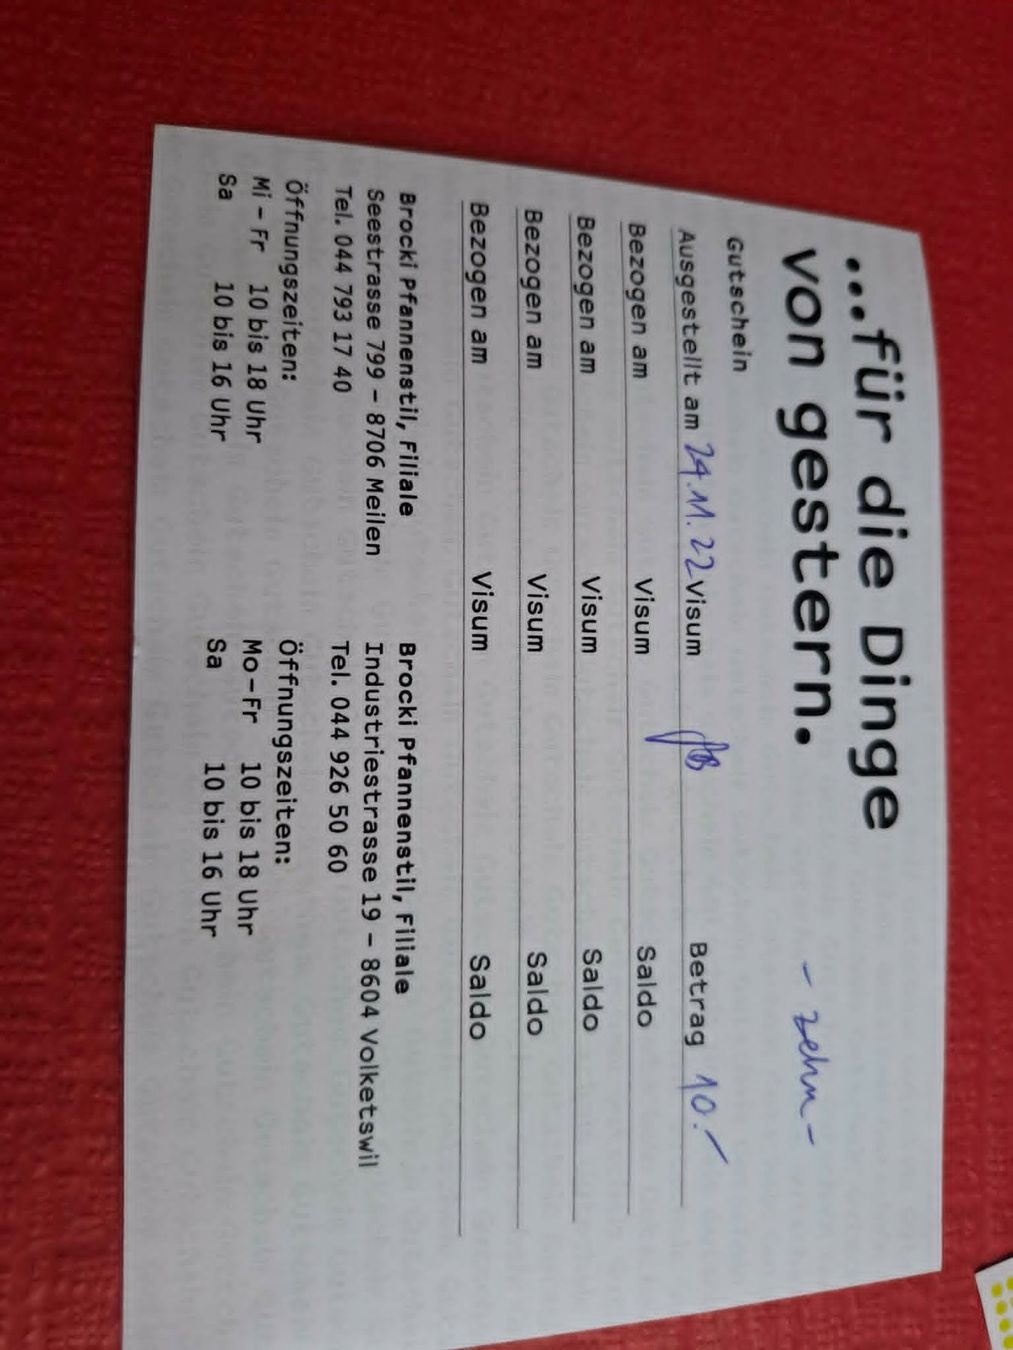 ...für die Dinge
von gestern.
- zehn -
Gutschein
Ausgestellt am 24.11.22 Visum Betrag 10.-
Bezogen am Visum Saldo
Bezogen am Visum Saldo
Bezogen am Visum Saldo
Bezogen am Visum Saldo
Brocki Pfannenstil, Filiale
Seestrasse 799 – 8706 Meilen
Tel. 044 793 17 40
Öffnungszeiten:
Mi – Fr 10 bis 18 Uhr
Sa 10 bis 16 Uhr
Brocki Pfannenstil, Filiale
Industriestrasse 19 – 8604 Volketswil
Tel. 044 926 50 60
Öffnungszeiten:
Mo – Fr 10 bis 18 Uhr
Sa 10 bis 16 Uhr